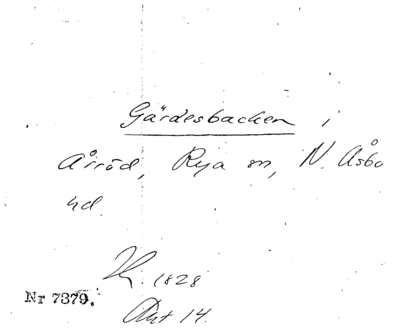 Gärdesbacken i
Årröd, Rya sn, N. Åsbo
hd.
1828
Nr 7379.
Akt 14.